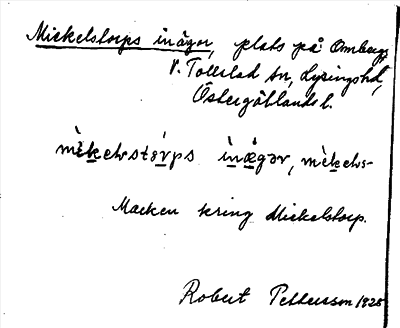 Mickelstorps inägor, plats på Omberg,
V. Tollstad sn, Lysingshd,
Östergötlands l.
mèkelstórps ìnǽgər, mèkels-
Marken kring Mickelstorp.
Robert Pettersson 1925